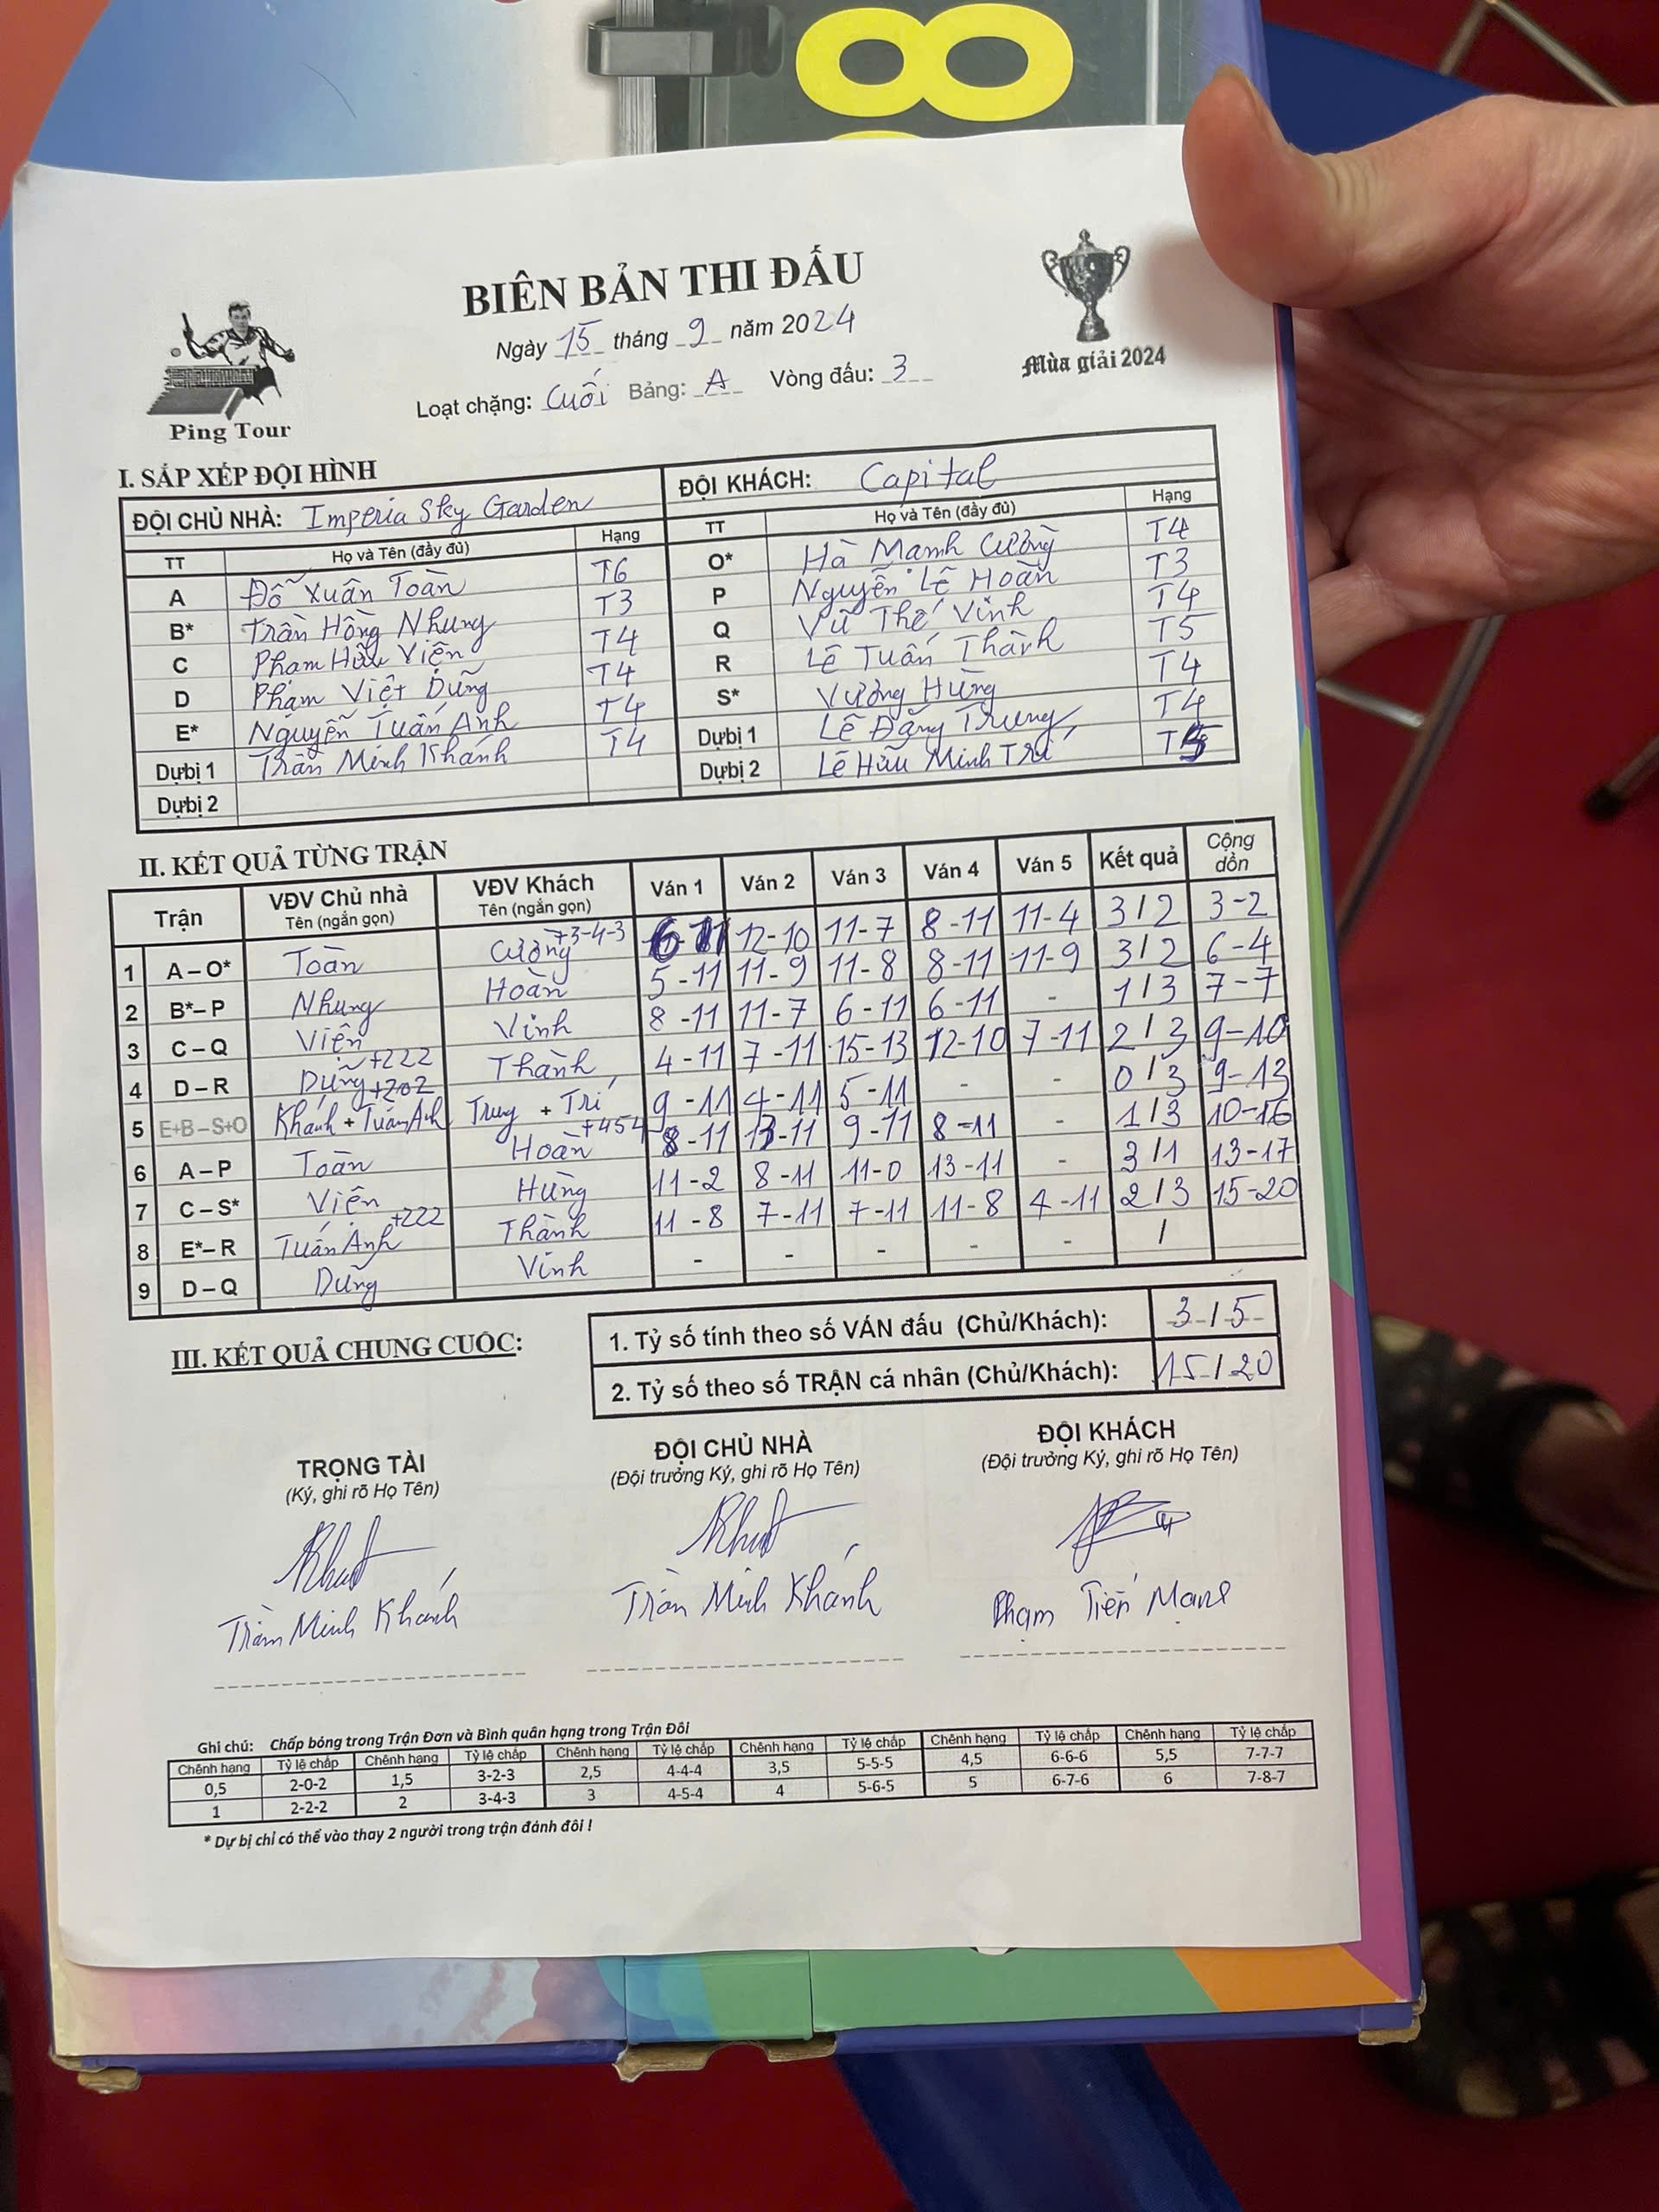 8
BIÊN BẢN THI ĐẤU
Ngày 15 tháng 9 năm 2024
Loạt chặng: Cuối Bảng: A Vòng đấu: 3
Ping Tour
Mùa giải 2024
I. SẮP XẾP ĐỘI HÌNH
ĐỘI CHỦ NHÀ: Imperia Sky Garden ĐỘI KHÁCH: Capital
TT Họ và Tên (đầy đủ) Hạng TT Họ và Tên (đầy đủ) Hạng
A Đỗ Xuân Toàn T6 O* Hà Mạnh Cường T4
B* Trần Hồng Nhung T3 P Nguyễn Lê Hoàn T3
C Phạm Hữu Viện T4 Q Vũ Thế Vinh T4
D Phạm Việt Dũng T4 R Lê Tuấn Thành T5
E* Nguyễn Tuấn Anh T4 S* Vương Hùng T4
Dự bị 1 Trần Minh Khánh T4 Dự bị 1 Lê Đặng Trung T4
Dự bị 2 Dự bị 2 Lê Hữu Minh Trí T5
II. KẾT QUẢ TỪNG TRẬN
Trận VĐV Chủ nhà Tên (ngắn gọn) VĐV Khách Tên (ngắn gọn) Ván 1 Ván 2 Ván 3 Ván 4 Ván 5 Kết quả Cộng dồn
1 A – O* Toàn Cường +3-4-3 6-11 12-10 11-7 8-11 11-4 3/2 3-2
2 B* – P Nhung Hoàn 5-11 11-9 11-8 8-11 11-9 3/2 6-4
3 C – Q Viện Vinh 8-11 11-7 6-11 6-11 - 1/3 7-7
4 D – R Dũng +222 Thành 4-11 7-11 15-13 12-10 7-11 2/3 9-10
5 E+B – S+O Khánh + Tuấn Anh +202 Trung + Trí 9-11 4-11 5-11 - - 0/3 9-13
6 A – P Toàn Hoàn +454 8-11 13-11 9-11 8-11 - 1/3 10-16
7 C – S* Viện Hùng 11-2 8-11 11-0 13-11 - 3/1 13-17
8 E* – R Tuấn Anh +222 Thành 11-8 7-11 7-11 11-8 4-11 2/3 15-20
9 D – Q Dũng Vinh - - - - - /
III. KẾT QUẢ CHUNG CUỘC:
1. Tỷ số tính theo số VÁN đấu (Chủ/Khách): 3/5
2. Tỷ số theo số TRẬN cá nhân (Chủ/Khách): 15/20
TRỌNG TÀI ĐỘI CHỦ NHÀ ĐỘI KHÁCH
(Ký, ghi rõ Họ Tên) (Đội trưởng Ký, ghi rõ Họ Tên) (Đội trưởng Ký, ghi rõ Họ Tên)
Trần Minh Khánh Trần Minh Khánh Phạm Tiến
Ghi chú: Chấp bóng trong Trận Đơn và Bình quân hạng trong Trận Đôi
Chênh hạng Tỷ lệ chấp Chênh hạng Tỷ lệ chấp Chênh hạng Tỷ lệ chấp Chênh hạng Tỷ lệ chấp Chênh hạng Tỷ lệ chấp Chênh hạng Tỷ lệ chấp
0,5 2-0-2 1,5 3-2-3 2,5 4-4-4 3,5 5-5-5 4,5 6-6-6 5,5 7-7-7
1 2-2-2 2 3-4-3 3 4-5-4 4 5-6-5 5 6-7-6 6 7-8-7
* Dự bị chỉ có thể vào thay 2 người trong trận đánh đôi !